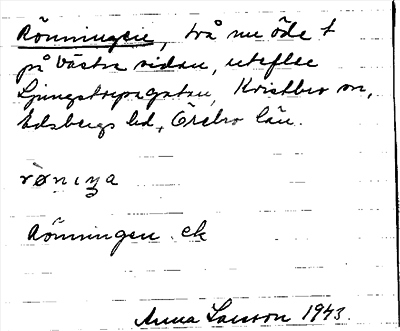 Rönningen, två nu öde t
på västra sidan, utefter
Ljungstorpagatan, Kvistbro sn,
Edsbergs hd, Örebro län.
Rönningen. ek
Anna Larsson 1943.